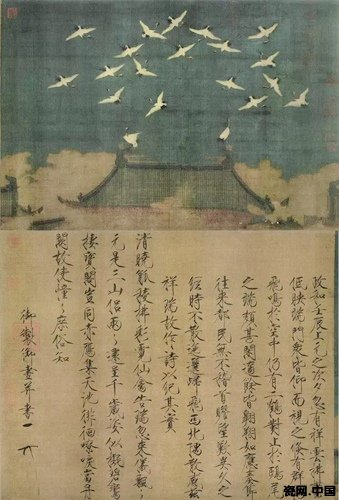 政和壬辰上元之次夕忽有祥雲拂鬱
低映端門眾皆仰而視之倏有群鶴
飛鳴於空中仍有二鶴對止於鴟尾
之端頗甚閒適餘皆翱翔如應奏節
往來都民無不稽首瞻望歎異久之
經時不散迤邐歸飛西北隅散感茲
祥瑞故作詩以紀其實
清曉觚稜拂彩霓仙禽告瑞忽來儀飄〻
元是三山侶兩〻還呈千歲姿似擬碧鸞
棲寶閣豈同赤鴈集天池徘徊嘹唳當丹
闕故使憧〻庶俗知
御製御畫并書
瓷网.中国